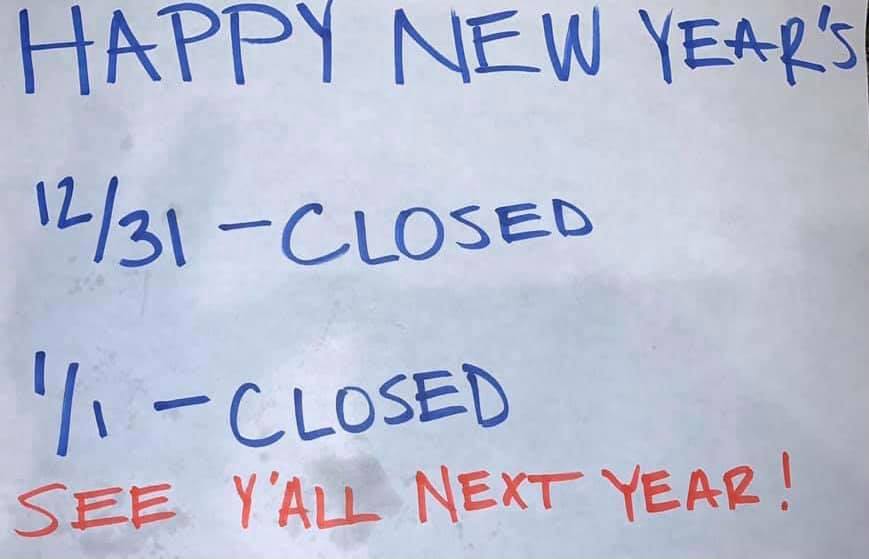 HAPPY NEW YEAR'S
12/31 - CLOSED
1/1 - CLOSED
SEE Y'ALL NEXT YEAR!